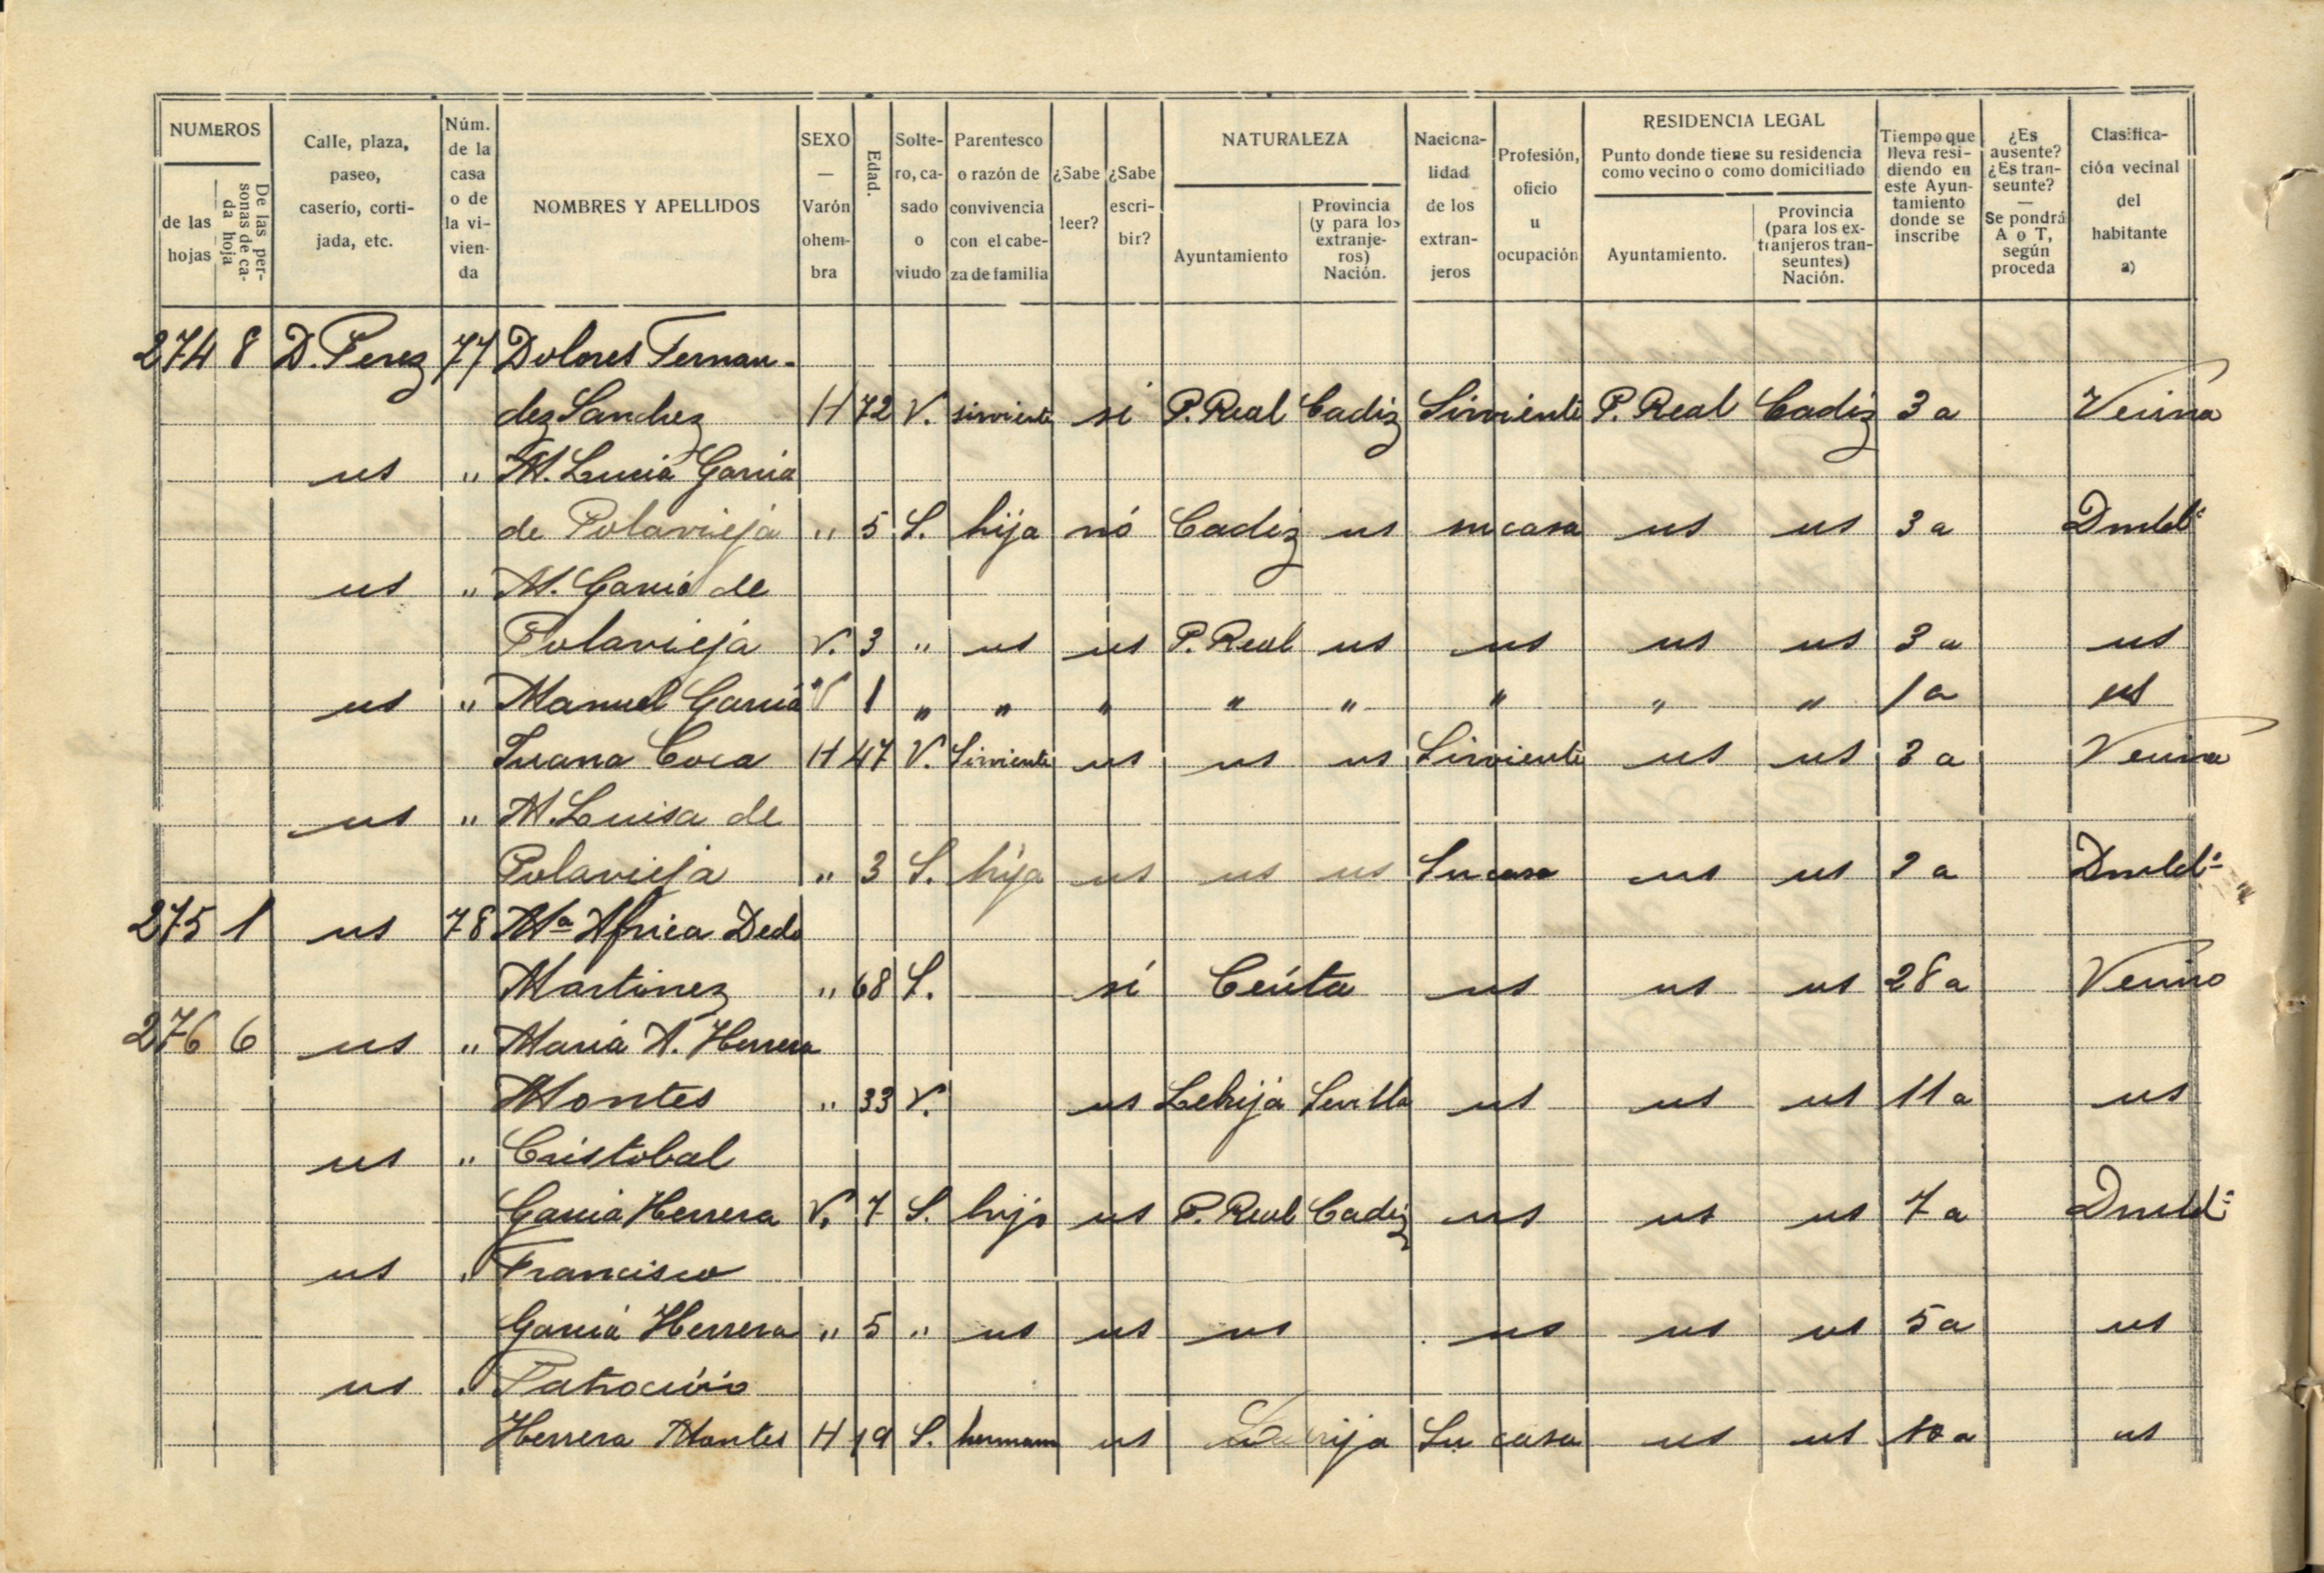 NUMEROS
de las hojas
De las personas de cada hoja
Calle, plaza, paseo, caserío, cortijada, etc.
Núm. de la casa o de la vivienda
NOMBRES Y APELLIDOS
SEXO — Varón ohembra
Edad.
Soltero, casado o viudo
Parentesco o razón de convivencia con el cabeza de familia
¿Sabe leer?
¿Sabe escribir?
NATURALEZA
Ayuntamiento
Provincia (y para los extranjeros) Nación.
Naciona-lidad de los extran-jeros
Profesión, oficio u ocupación
RESIDENCIA LEGAL
Punto donde tiene su residencia como vecino o como domiciliado
Ayuntamiento.
Provincia (para los extranjeros transeuntes) Nación.
Tiempo que lleva residiendo en este Ayuntamiento donde se inscribe
¿Es ausente? ¿Es transeunte? — Se pondrá A o T, según proceda
Clasificación vecinal del habitante a)
274 8 D. Perez 77 Dolores Fernan-
dez Sanchez H 72 V. sirviente si P. Real Cadiz Sirviente P. Real Cadiz 3 a Vecina
us " M. Lucia Garcia
de Polavieja " 5 S. hija nó Cadiz us su casa us us 3 a Dmcld.ª
us " M. Garcia de
Polavieja V. 3 " us us P. Real us us us us 3 a us
us " Manuel Garcia V 1 " " " " " " " " 1 a us
Juana Coca H 47 V. Sirviente us us us Sirviente us us 3 a Vecina
us " M. Luisa de
Polavieja " 3 S. hija us us us Su casa us us 2 a Dmcld.ª
275 1 us 78 Mª Africa Dedo
Martinez " 68 S. — si Ceúta us us us 28 a Vecino
276 6 us " Maria A. Herrera
Montes " 33 V. us Lebrija Sevilla us us us 11 a us
us " Cristobal
Garcia Herrera V. 7 S. hijo us P. Real Cadiz us us us 7 a Dmcld.º
us " Francisco
Garcia Herrera " 5 " us us us us us us 5 a us
us " Patrocinio
Herrera Montes H 19 S. hermana us Lebrija Su casa us us 10 a us